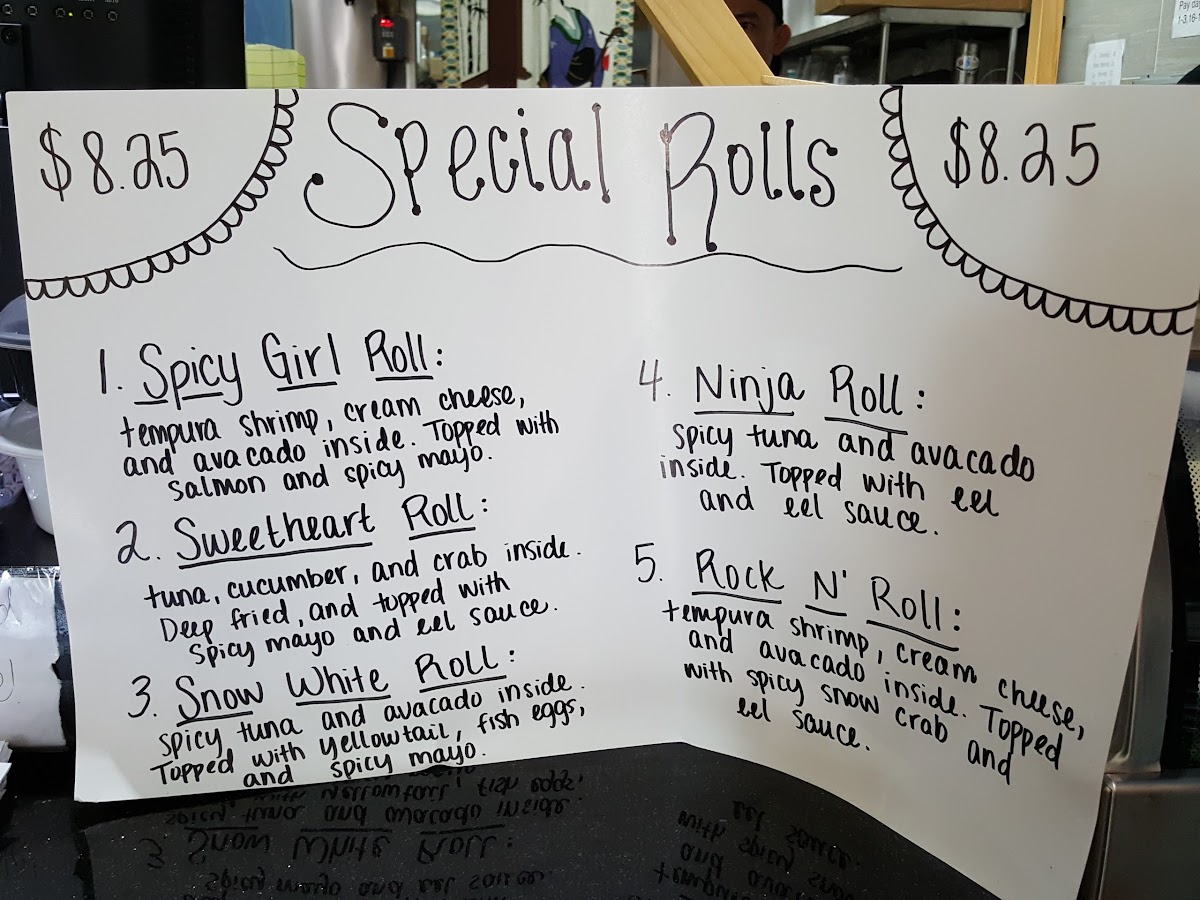 Pay day
$8.25
Special Rolls
$8.25
1. Spicy Girl Roll:
tempura shrimp, cream cheese,
and avacado inside. Topped with
salmon and spicy mayo.
2. Sweetheart Roll:
tuna, cucumber, and crab inside.
Deep fried, and topped with
spicy mayo and eel sauce.
3. Snow White Roll:
spicy tuna and avacado inside.
Topped with yellowtail, fish eggs,
and spicy mayo.
4. Ninja Roll:
spicy tuna and avacado
inside. Topped with eel
and eel sauce.
5. Rock N' Roll:
tempura shrimp, cream cheese,
and avacado inside. Topped
with spicy snow crab and
eel sauce.